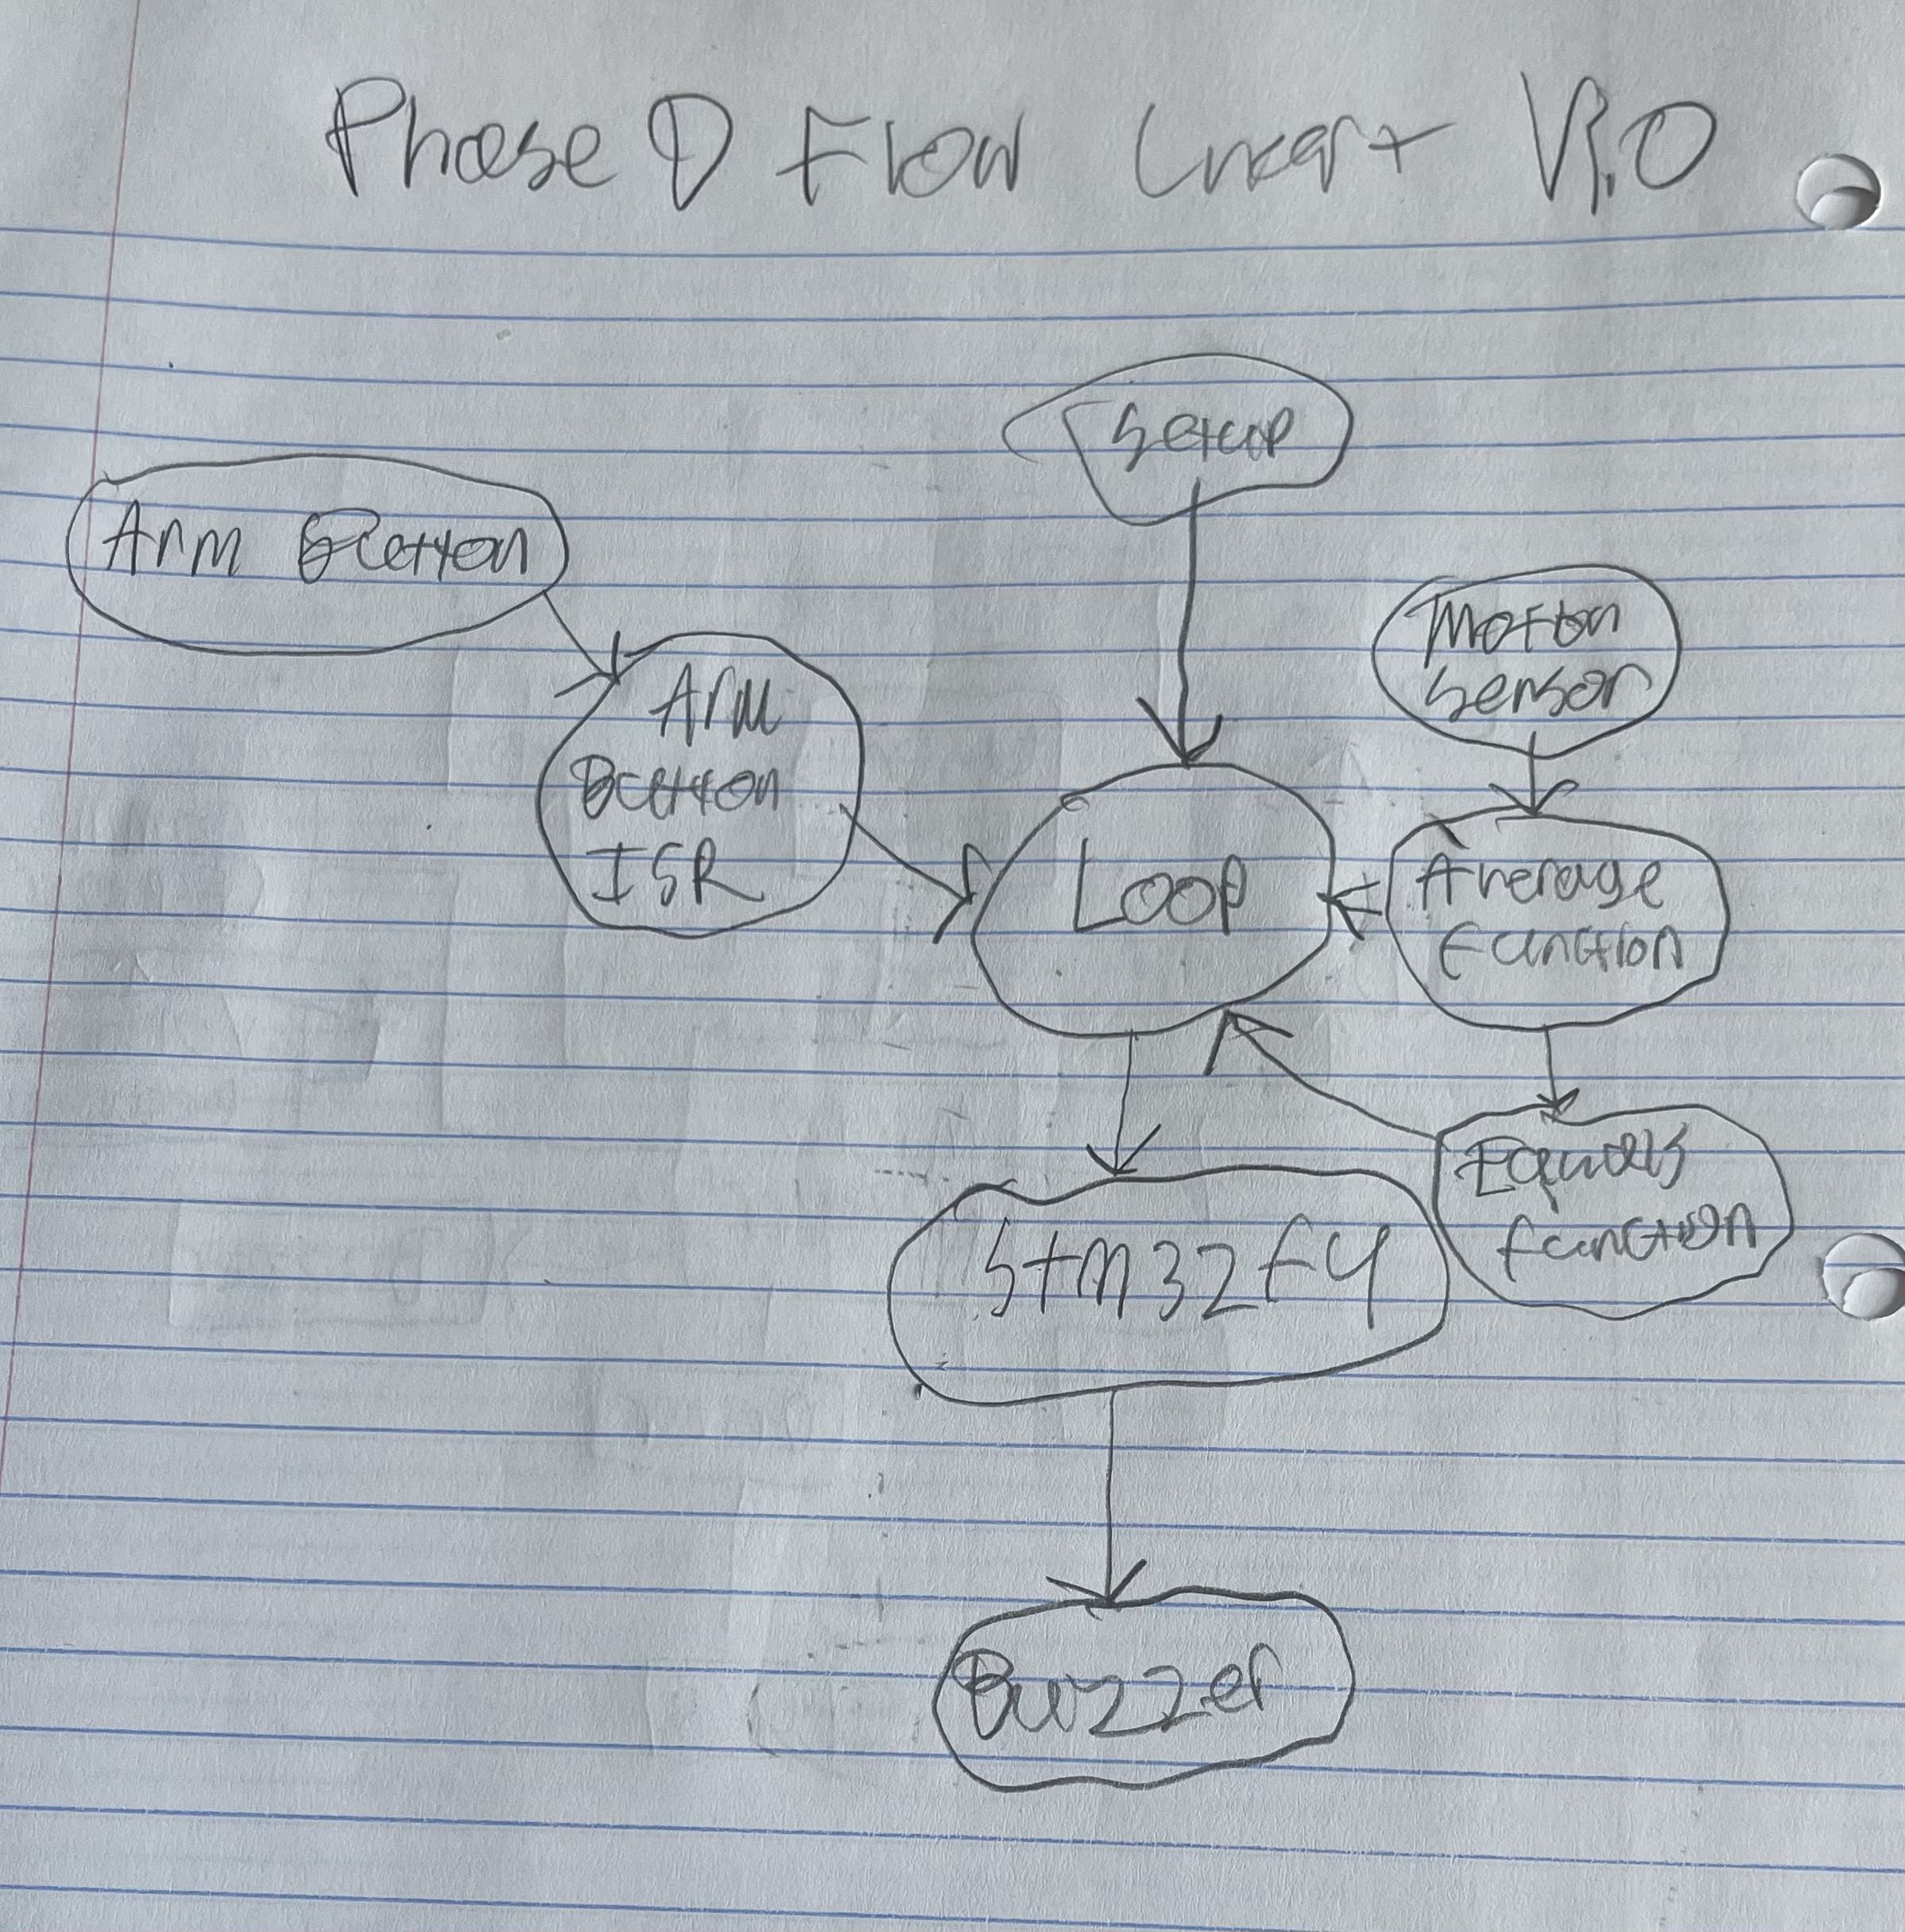 Phase D Flow Chart V1.0
Setup
Arm Button
Motion
Sensor
Arm
Button
ISR
Loop
Average
Function
Equals
function
Stm32f4
Buzzer